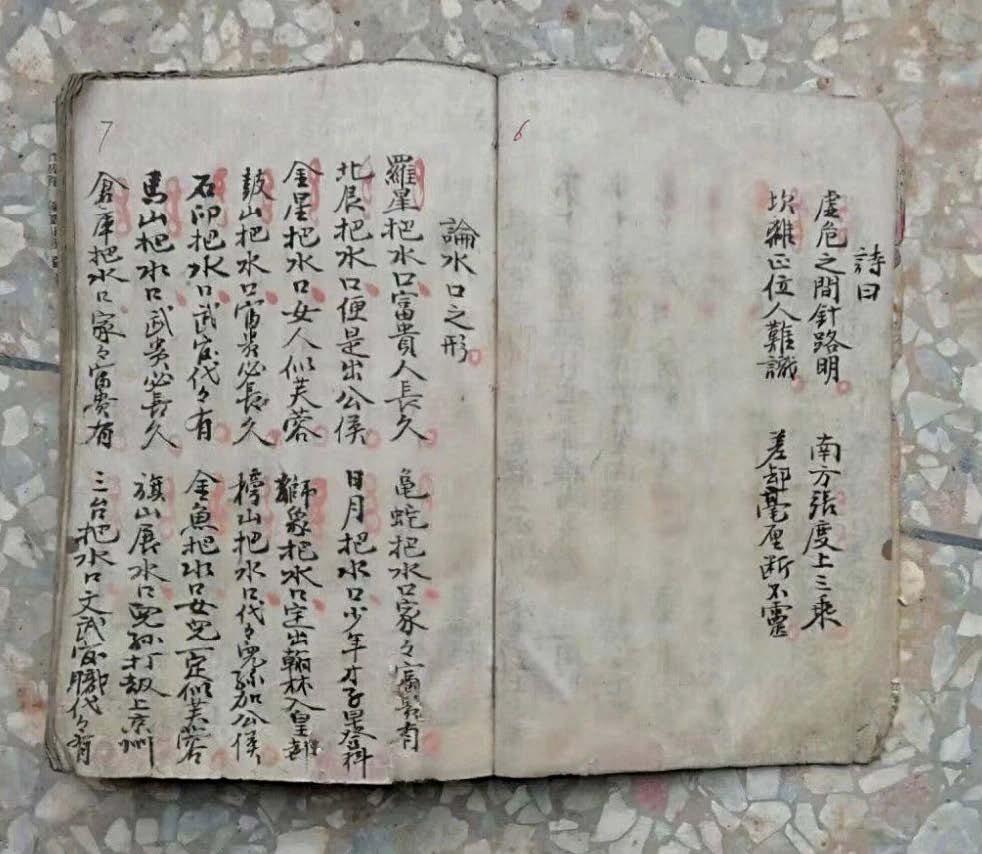 6
詩曰
虛危之間針路明 南方張度上三乘
坎離正位人難識 差却毫厘断不靈
7
論水口之形
羅星把水口富貴人長久 亀蛇把水口家々富貴有
北辰把水口便是出公侯 日月把水口少年才子早登科
金星把水口女人似芙蓉 獅象把水口定出翰林入皇都
鼓山把水口富贵必長久 榜山把水口代々兒孫加公侯
石印把水口武官代々有 金魚把水口女兒一定似芙蓉
馬山把水口武贵必長久 旗山展水口兒孙打刼上京州
倉庫把水口家々富貴有 三台把水口文武官職代々有